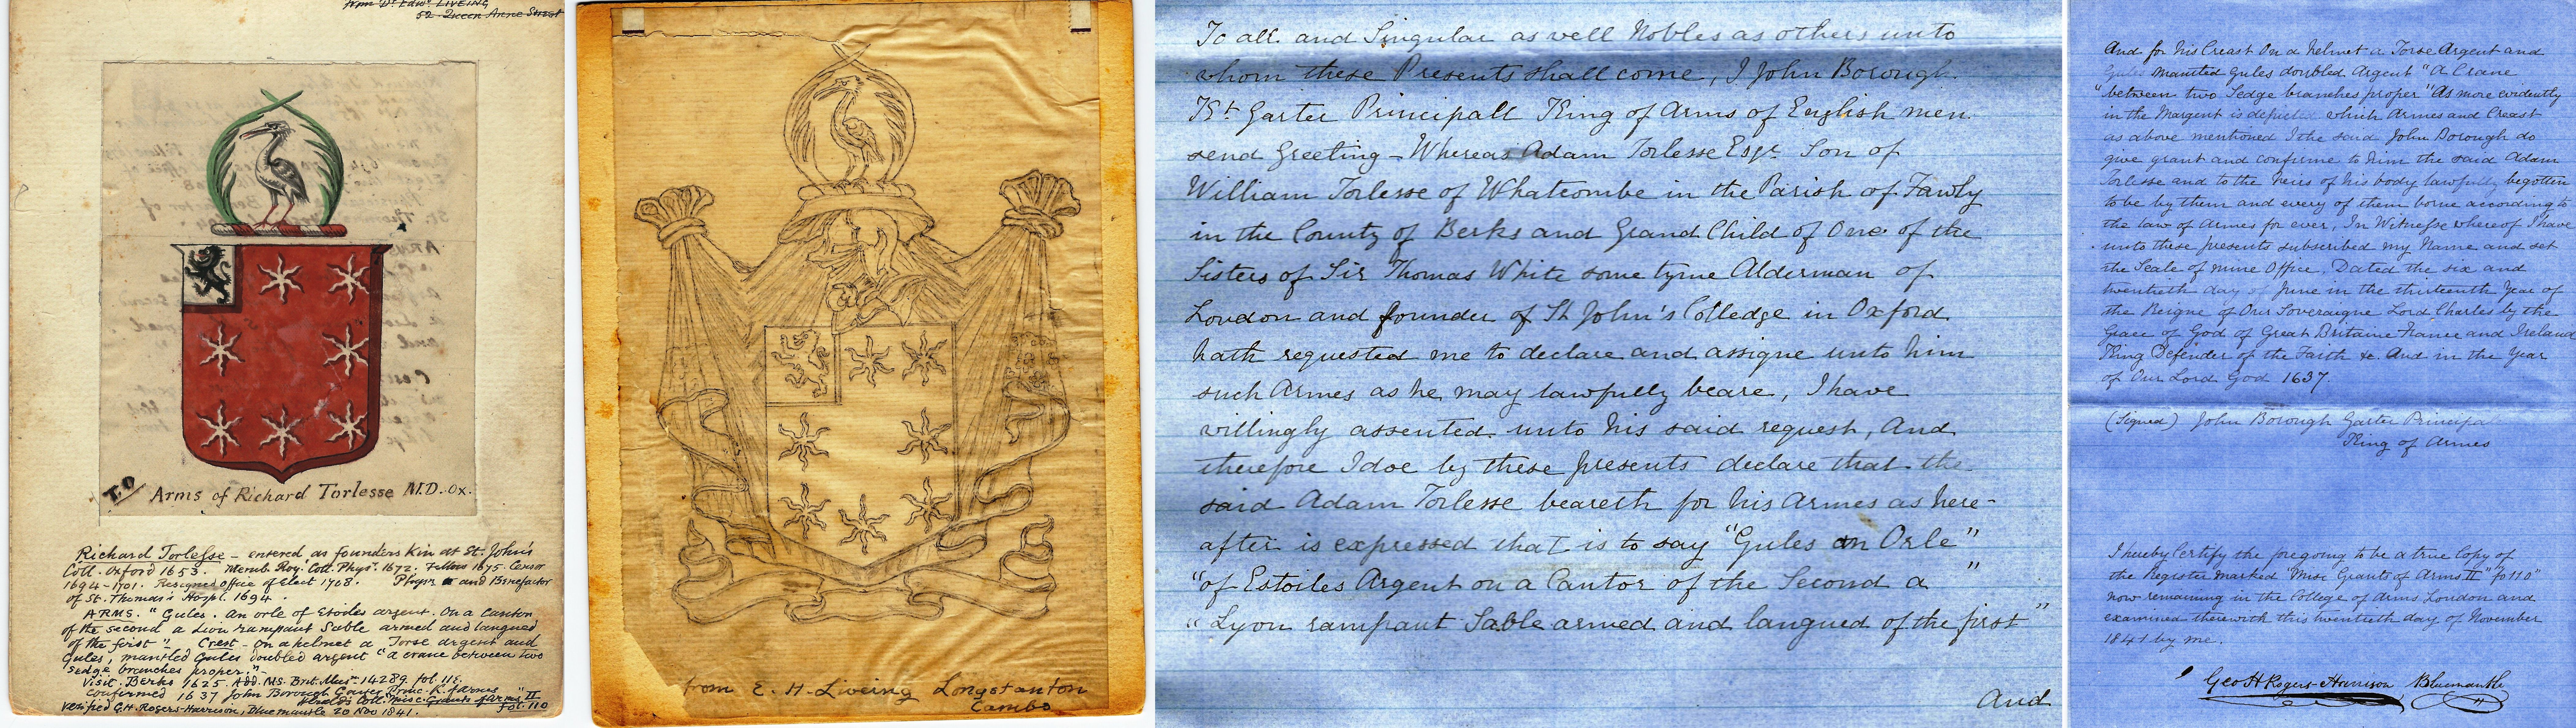 from Dr Edwd LIVEING
52 Queen Anne Street
T.O
Arms of Richard Torlesse M.D. Ox.
Richard Torlesse – entered as founders Kin at St. John's
Coll. Oxford 1653. Memb. Roy. Coll. Physs. 1672. Fellow 1675. Censor
1694-1701. Resigned office of Elect 1708. Physn and Benefactor
of St. Thomas's Hospl. 1694.
ARMS. "Gules. An orle of Estoiles argent. On a Canton
of the second a Lion rampant Sable armed and langued
of the first". Crest - on a helmet a Torse argent and
Gules, mantled Gules doubled argent "a crane between two
sedge branches proper."
Visit. Berks 1625. Add. MS. Brit. Mus. 14289 fol. 118.
Confirmed 1637 John Borough Garter Princ. K. of arms
Heralds Coll. "Misc. Grants of Arms" II
verified G.H. Rogers-Harrison, Bluemantle 20 Nov 1841. fol. 110
from E. H. Liveing Longstanton
Cambs
To all and Singular as well Nobles as others unto
whom these Presents shall come, I John Borough
Kt. Garter Principall King of Arms of English men
send Greeting – Whereas Adam Torlesse Esqr. Son of
William Torlesse of Whatcombe in the Parish of Fawly
in the County of Berks and Grand Child of One of the
Sisters of Sir Thomas White some tyme Alderman of
London and founder of St John's Colledge in Oxford
hath requested me to declare and assigne unto him
such Armes as he may lawfully beare, I have
willingly assented unto his said request, And
therefore I doe by these presents declare that the
said Adam Torlesse beareth for his Armes as here-
after is expressed that is to say "Gules an Orle"
"of Estoiles Argent on a Cantor of the Second a"
"Lyon rampant Sable armed and langued of the first"
And
And for his Creast On a Helmet a Torse Argent and
Gules Mantled Gules doubled Argent "A Crane
"between two Sedge branches proper" As more evidently
in the Margent is depicted which Armes and Creast
as above mentioned I the said John Borough do
give grant and confirme to him the said Adam
Torlesse and to the heirs of his body lawfully begotten
to be by them and every of them borne according to
the law of Armes for ever, In Witnesse whereof I have
unto these presents subscribed my Name and set
the Seale of mine Office. Dated the six and
twentieth day of June in the thirteenth Year of
the Reigne of Our Soveraigne Lord Charles by the
Grace of God of Great Britaine France and Ireland
King Defender of the Faith &c. And in the Year
of Our Lord God 1637.
(Signed) John Borough Garter Principa
King of Armes
I hereby Certify the foregoing to be a true Copy of
the Register marked "Misc Grants of Arms II" "fo 110"
now remaining in the College of Arms London and
examined therewith this twentieth day of November
1841 by me.
Geo H Rogers-Harrison, Bluemantle